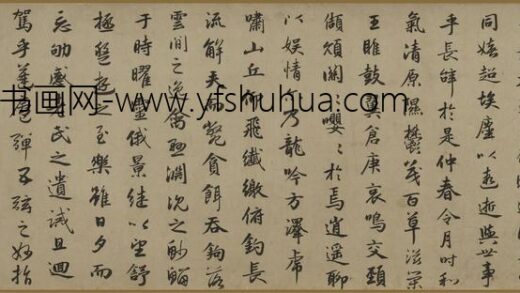 同嬉超埃塵以遐逝與世事
乎長辭於是仲春令月时和
氣清原隰鬱茂百草滋榮
王雎鼓翼倉庚哀鳴交頸
頡頏關〻嚶〻於焉逍遙聊
以娛情乃龍吟方澤虎
嘯山丘仰飛纖繳俯釣長
流觸矢而斃貪餌吞鉤落
雲間之逸禽懸淵沉之魦鰡
于時曜靈俄景繼以望舒
極盤遊之至樂雖日夕而
忘劬感老氏之遺誡且迴
駕乎蓬廬彈五弦之妙指
书画网-www.yfshuhua.com